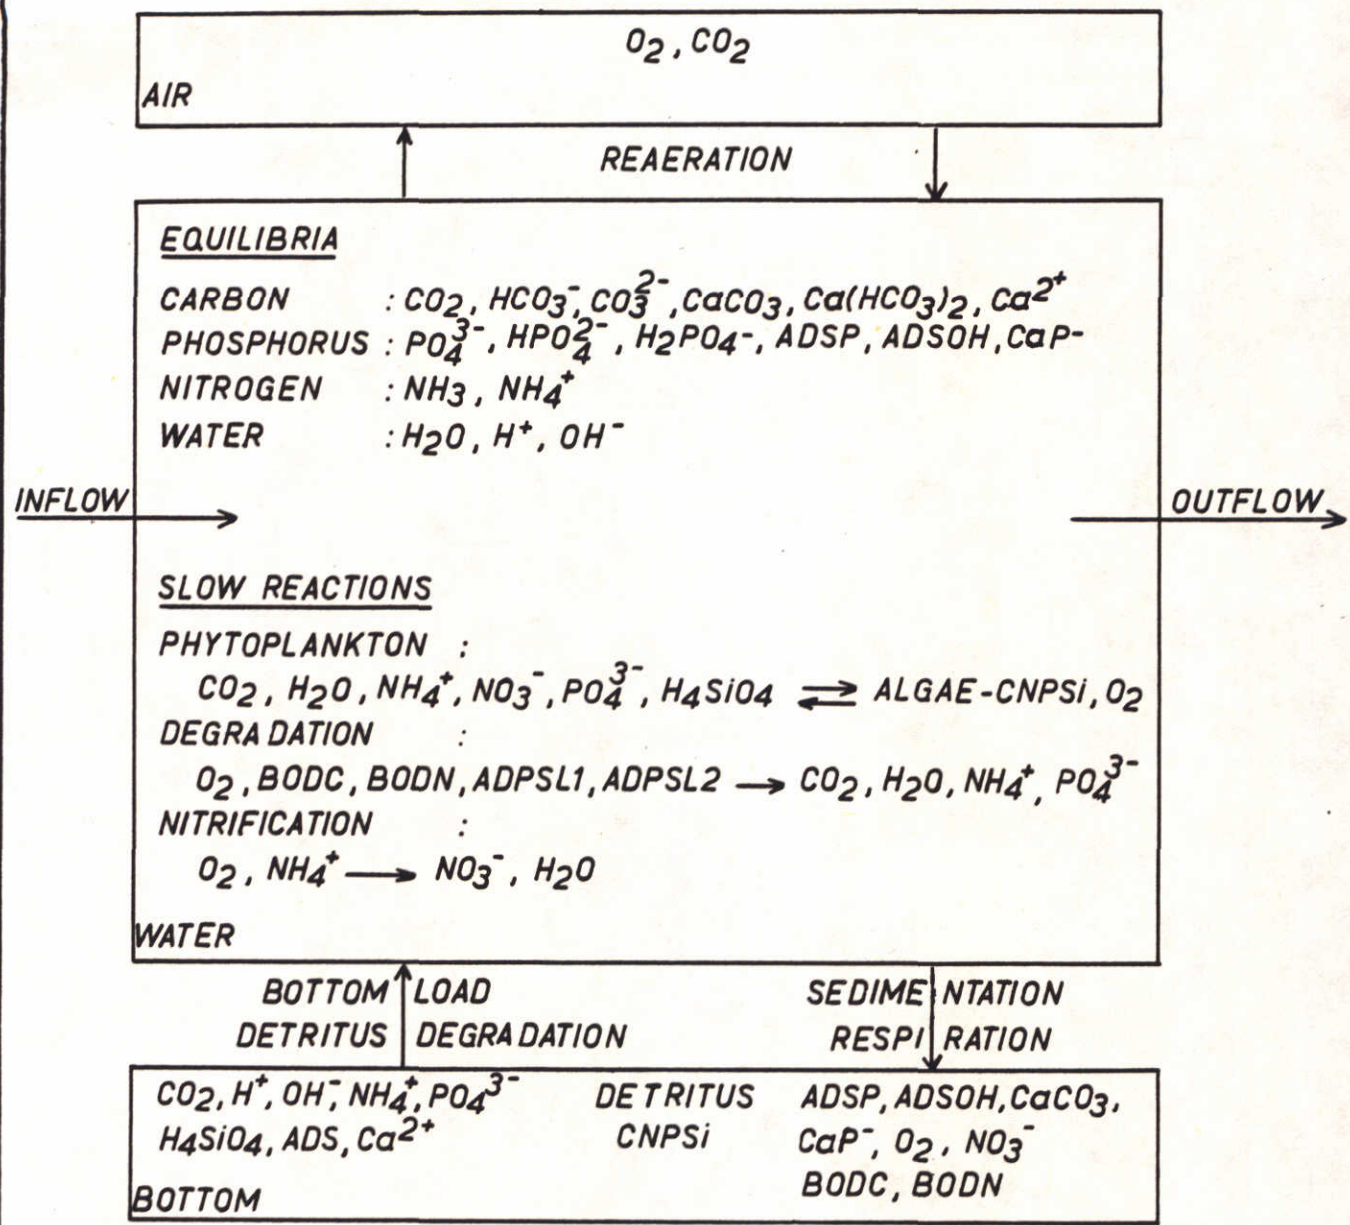 O₂, CO₂
AIR
REAERATION
EQUILIBRIA
CARBON : CO₂, HCO₃⁻, CO₃²⁻, CaCO₃, Ca(HCO₃)₂, Ca²⁺
PHOSPHORUS : PO₄³⁻, HPO₄²⁻, H₂PO₄-, ADSP, ADSOH, CaP-
NITROGEN : NH₃, NH₄⁺
WATER : H₂O, H⁺, OH⁻
INFLOW
OUTFLOW
SLOW REACTIONS
PHYTOPLANKTON :
CO₂, H₂O, NH₄⁺, NO₃⁻, PO₄³⁻, H₄SiO₄ ⇌ ALGAE-CNPSi, O₂
DEGRADATION :
O₂, BODC, BODN, ADPSL1, ADPSL2 → CO₂, H₂O, NH₄⁺, PO₄³⁻
NITRIFICATION :
O₂, NH₄⁺ → NO₃⁻, H₂O
WATER
BOTTOM LOAD
DETRITUS DEGRADATION
SEDIMENTATION
RESPIRATION
CO₂, H⁺, OH⁻, NH₄⁺, PO₄³⁻
H₄SiO₄, ADS, Ca²⁺
DETRITUS
CNPSi
ADSP, ADSOH, CaCO₃,
CaP⁻, O₂, NO₃⁻
BODC, BODN
BOTTOM